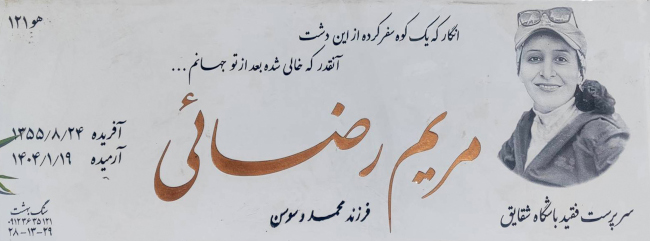 هو ۱۲۱
انگار که یک کوه سفر کرده از این دشت
آنقدر که خالی شده بعد از تو جهانم ...
مریم رضائی
آفریده ۱۳۵۵/۸/۲۴
آرمیده ۱۴۰۴/۱/۱۹
فرزند محمد و سوسن
سرپرست فقید باشگاه شقایق
سنگ بهشت
۰۹۱۲۳۶۳۵۱۲۱
۲۸-۱۳-۲۹